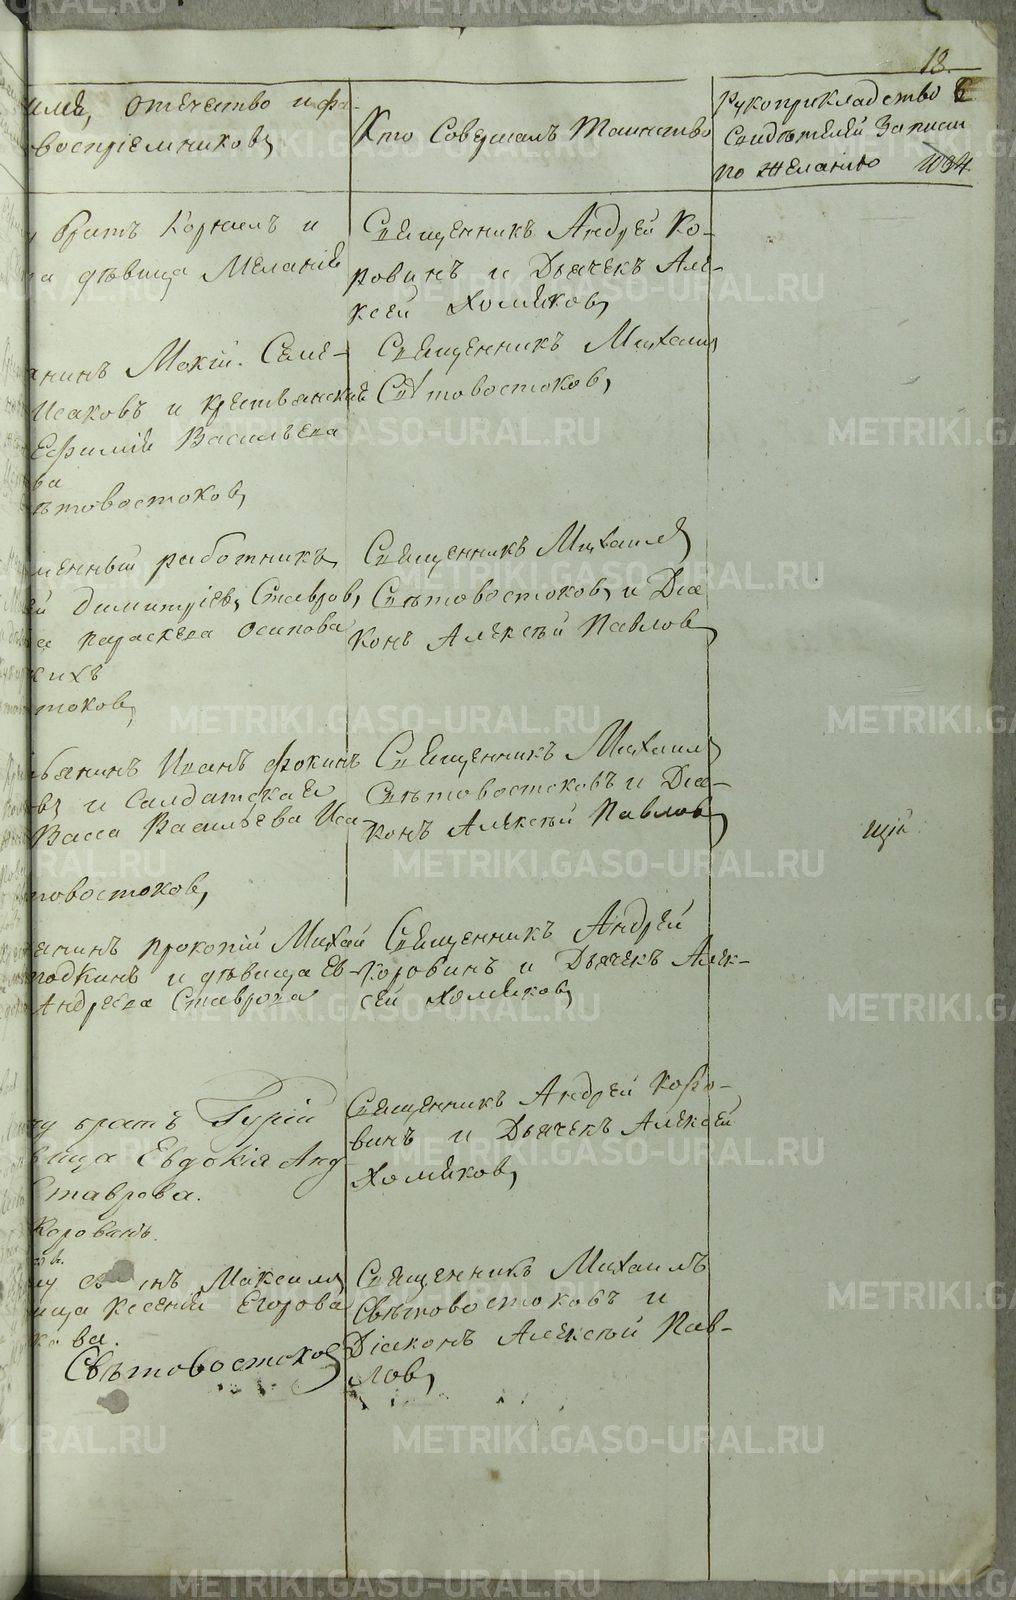 18.
имя, отечество и фа-
воспріемниковъ
Кто Совершалъ Таинство
Рукоприкладство
Свидѣтелей Записи
по желанію
1034
братъ Корнилъ и
дѣвица Меланія
Священникъ Андрей Ко-
ровинъ и Дьячекъ Але-
ксей Хомяковъ
анинъ Мокій Семе-
Исаковъ и крестьянская
Ефимія Васильева
ва
ѣтовостоковъ
Священникъ Михаилъ
Свѣтовостоковъ
менный работникъ
ей Димитріевъ Ставровъ
а параскева осипова
кихъ
токовъ
Священникъ Михаилъ
Свѣтовостоковъ и Діа
конъ Алексѣй Павловъ
ьянинъ Иванъ Фокинъ
въ и Салдатская
Васса Васильева Иса
товостоковъ
Священникъ Михаилъ
Свѣтовостоковъ и Діа-
конъ Алексѣй Павловъ
щій
анинъ прокопій Михай
подкинъ и дѣвица Ев-
Андреева Ставрова
Священникъ Андрей
Коровинъ и Дьячекъ Алек-
сей Хомяковъ
му братъ Гурій
вица Евдокія Анд
Ставрова.
Коровинъ.
въ.
Священникъ Андрей Коро-
винъ и Дьячекъ Алексей
Хомяковъ
му сынъ Максимъ
ица Ксенія Егорова
кова.
Свѣтовостоковъ
Священникъ Михаилъ
Свѣтовостоковъ и
Діаконъ Алексѣй Пав-
ловъ
METRIKI.GASO-URAL.RU